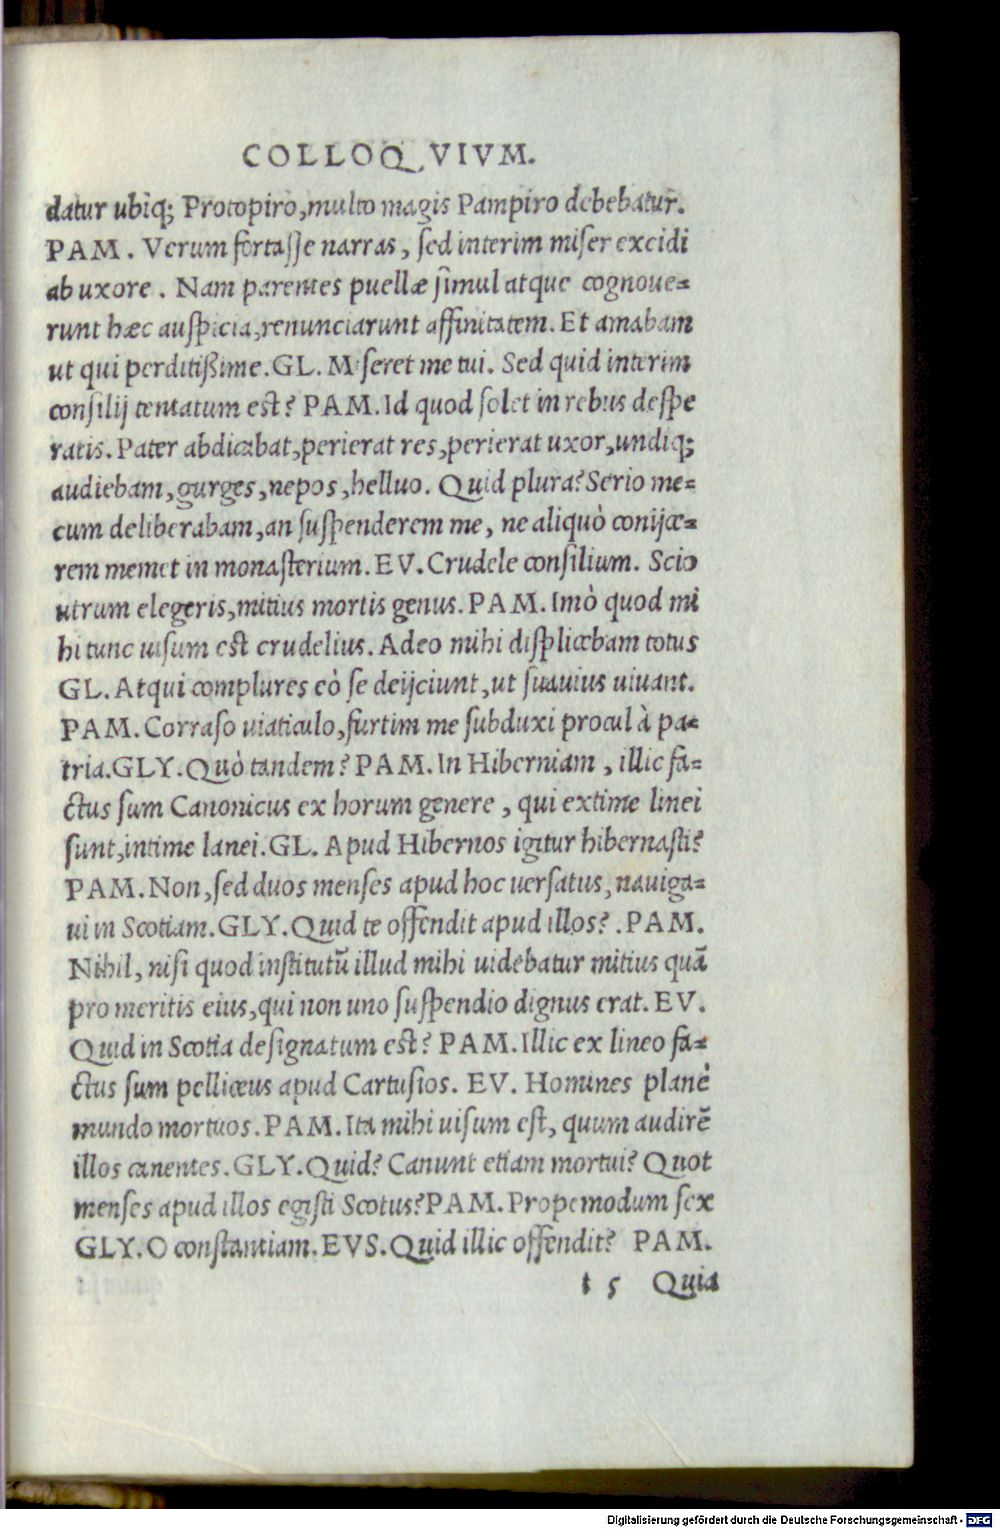 COLLOQVIVM.
datur ubiq; Protopiro, multo magis Pampiro debebatur.
PAM. Verum fortasse narras, sed interim miser excidi
ab uxore. Nam parentes puellæ simul atque cognoue=
runt hæc auspicia, renunciarunt affinitatem. Et amabam
ut qui perditißime. GL. Miseret me tui. Sed quid interim
consilij tentatum est? PAM. Id quod solet in rebus despe
ratis. Pater abdicabat, perierat res, perierat uxor, undiq;
audiebam, gurges, nepos, helluo. Quid plura? Serio me=
cum deliberabam, an suspenderem me, ne aliquò conijce=
rem memet in monasterium. EV. Crudele consilium. Scio
utrum elegeris, mitius mortis genus. PAM. Imò quod mi
hi tunc uisum est crudelius. Adeo mihi displicebam totus
GL. Atqui complures eò se deijciunt, ut suauius uiuant.
PAM. Corraso uiaticulo, furtim me subduxi procul à pa=
tria. GLY. Quò tandem? PAM. In Hiberniam, illic fa=
ctus sum Canonicus ex horum genere, qui extime linei
sunt, intime lanei. GL. Apud Hibernos igitur hibernasti?
PAM. Non, sed duos menses apud hoc uersatus, nauiga=
ui in Scotiam. GLY. Quid te offendit apud illos?. PAM.
Nihil, nisi quod institutū illud mihi uidebatur mitius quā
pro meritis eius, qui non uno suspendio dignus erat. EV.
Quid in Scotia designatum est? PAM. Illic ex lineo fa=
ctus sum pelliceus apud Cartusios. EV. Homines planè
mundo mortuos. PAM. Ita mihi uisum est, quum audirē
illos canentes. GLY. Quid? Canunt etiam mortui? Quot
menses apud illos egisti Scotus? PAM. Propemodum sex
GLY. O constantiam. EVS. Quid illic offendit? PAM.
t 5 Quia
Digitalisierung gefördert durch die Deutsche Forschungsgemeinschaft - DFG